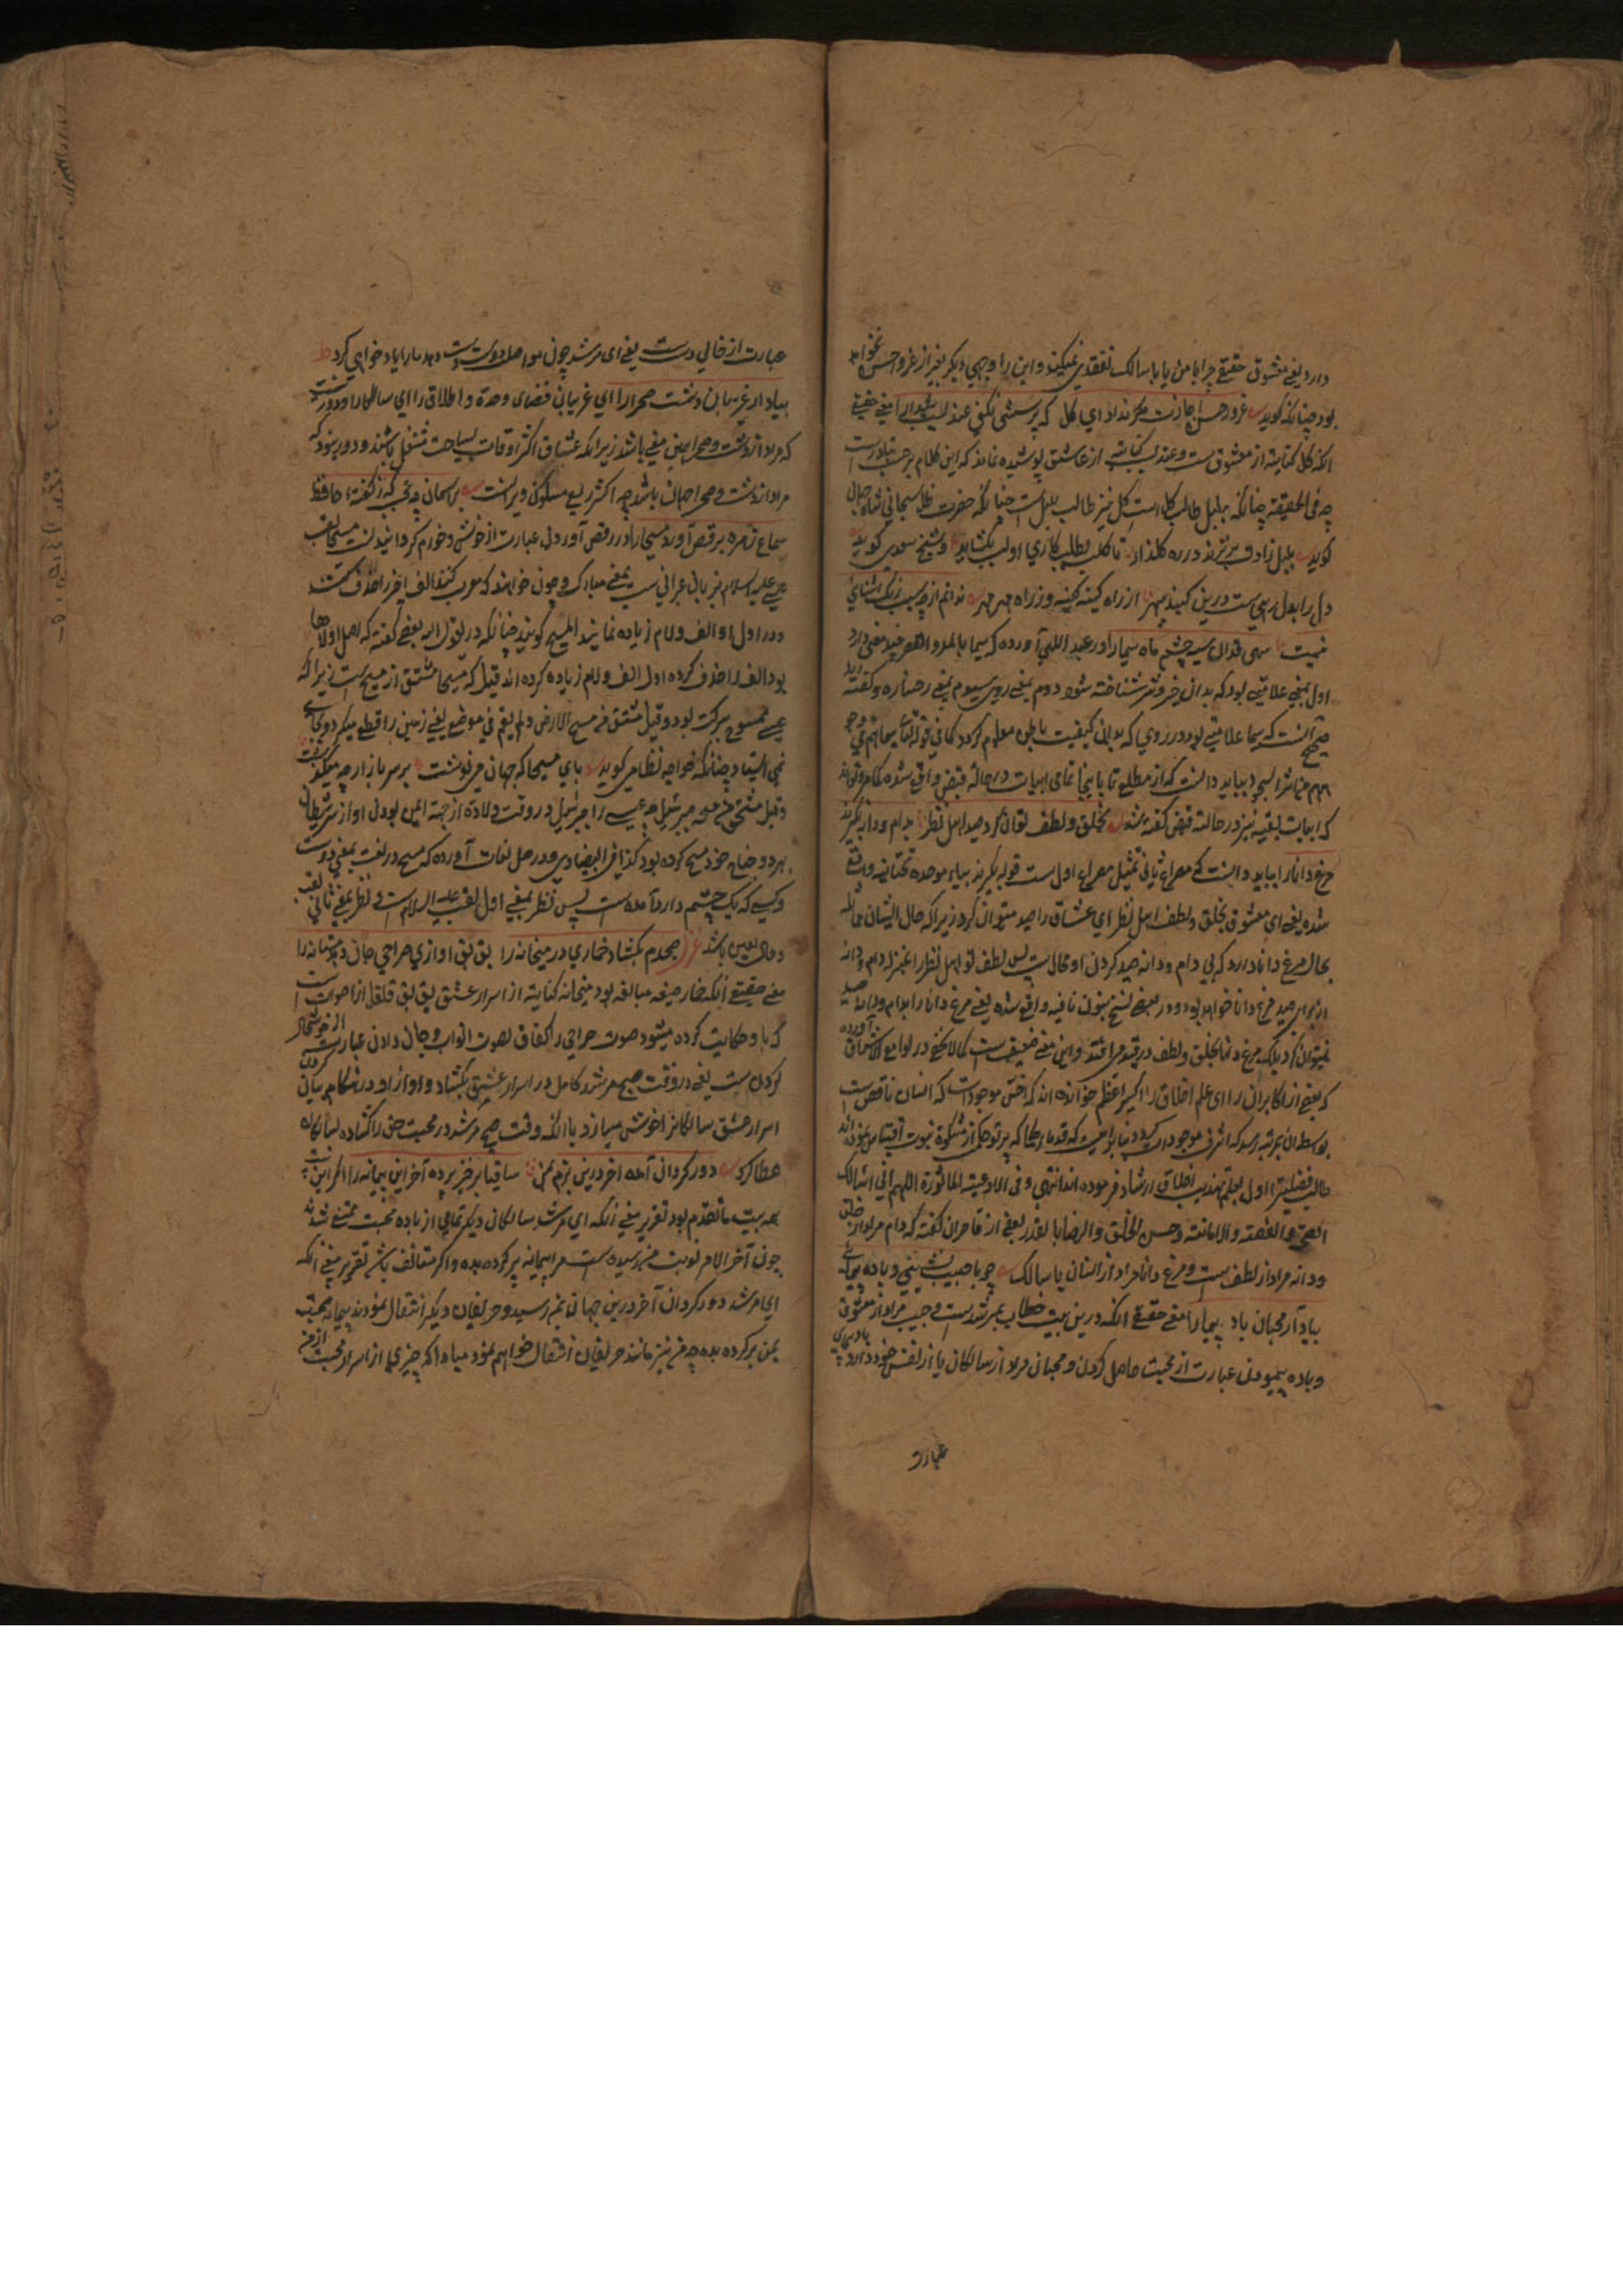 دارد یعنی معشوق حقیقی چرا با من یا با سالک تفقدی نمیکند و این را وجهی دیگر بغیر از غرور حسن نخواهد
بود چنانکه گوید غرور حسن اجازت مگر نداد ای گل که پرسشی نکنی عندلیب شیدا را معنی حقیقی
آنکه گل کنایته از معشوق ست و عندلیب کنایته از عاشق پوشیده نماند که این کلام بر حسب تبادر است
چه فی الحقیقته چنانکه بلبل طالب گل است گل نیز طالب بلبل است چنانکه حضرت ظل سبحانی شاه جهان
گوید بلبل زاد و بر نزند در ره گلذار تا گل بطلب کاری او لب نگشاید و شیخ سعدی گوید
دل را بدل رهی ست درین گنبد سپهر از راه کینه کینه و از راه مهر مهر ندانم از چه سبب رنگ آشنائی
نیست سهی قدان سیه چشم ماه سیما را ور عبد اللهی آورده که سیما بالمد و القصر چند معنی دارد
اول بمعنی علامتی بود که بدان خیر و شر شناخته شود دوم بمعنی روی سیوم بمعنی رخساره و گفته اند
صحیح آنست که سیما علامتی بود در روی که بدانی کیفیت باطن معلوم گردد کما فی قوله تعالی سیماهم فی وجو
ههم من اثر السجود بباید دانست که از مطلع تا باینجا تمامی ابیات در حالة قبض واقع شده
که ابیات بقیه نیز در حالته قبض گفته شود بخلق و لطف توان کرد صید اهل نظر بدام و دانه نگیرند
مرغ دانا را بباید دانست که مصراع ثانی تمثیل مصراع اول ست قوله بگیرند بباء موحده تحتانیه واقع
شده یعنی ای معشوق بخلق و لطف اهل نظر ای عشاق را صید میتوان کرد زیرا که حال ایشان
بحال مرغ دانا دارد که بی دام و دانه صید کردن او محال ست پس لطف تو اهل نظر را بمنزله دام و دانه
از برای صید مرغ دانا خواهد بود و در بعضی نسخ بنون نافیه واقع شده یعنی مرغ دانا را بدام و دانه صید
نمیتوان کرد بلکه مرغ دانا بخلق و لطف در قید می افتد و این معنی ضعیف ست کما لا یخفی در لوامع الاشراق آورده
که بعضی از اکابران را ای علم اخلاق را اکسیر اعظم خوانده اند که اخس موجودات که انسان ناقص ست
بواسطه ان بمرتبه رسد که اشرف موجودات گردد بنابرانست که قدماء حکما که پرتو حکم از مشکوة نبوت اقتباس نموده اند
طالب فضیلت را اول بعلم تهذیب اخلاق ارشاد فرموده اند انتهی و فی الادعیته الماثورة اللهم انی اسالک
الصحة و العفته و الامانته و حسن الخلق و الرضا بالقدر بعضی از قاصران گفته که دام مراد از خلق
و دانه مراد از لطف ست و مرغ دانا مراد از انسان یا سالک چو با حبیب نشینی و باده پیمائی
بیاد آر محبان باد پیما را معنی حقیقی آنکه درین بیت خطاب بمرشد ست و حبیب مراد از معشوق
و باده پیمودن عبارت از محبت حاصل کردن و محبان مراد از سالکان یا از نفس خود دارد باد پیمای
عبارت
عبارت از خالی دست یعنی ای مرشد چون مواصل دوست
بیاد آر غریبان دشت صحرا را ای غریبان فضای وحدة و اطلاق را ای سالکانرا و دور نیست
که مراد از دشت و صحرا همین معنی باشد زیرا که عشاق اکثر اوقات بسیاحت مشتغل باشند و دور نبود که
مراد از دشت و صحرا جهان باشد چه اکثر ربع مسکون ویرانست بر آسمان چه عجب که ز گفته حافظ
سماع زهره برقص آورد مسیحا را در رقص آوردن عبارت از خوش و خرم گردانیدنست مسیحا لقب
عیسی علیه السلام بزبان عبرانی ست بمعنی مبارک و چون خواهند که معرب کنند الف اخیر را حذف
و در اول او الف و لام زیاده نمایند المسیح گویند چنانکه در بعضی گفته که اصل او لاها
بود الف را حذف کرده اول الف و لام زیاده کرده اند قیل که مسیحا مشتق از مسیح ست زیرا که
عیسی ممسوح ببرکت بود و قیل مشتق من مسح الارض و لم یقم فی موضع یعنی زمین را قطع میکرد و بجای
نمی ایستاد چنانکه خواجه نظامی گوید پای مسیحا که جهان می نوشت بر سر بازارچه میگذشت
و قیل مشتق من مسحه جبرئیل چه عیسی را جبرئیل در وقت ولادة از جهة ایمن بودن او از شر شیطان
بهر دو جناح خود مسح کرده بود کذا فی البیضاوی و در حل لغات آورده که مسیح در لغت بمعنی دوست
و کسی که یک چشم دارد آمده است پس نظر بمعنی اول لقب عیسی علیه السلام است و نظر بمعنی ثانی لقب
دجال لعین باشد غزل صبحدم بگشاد خماری در میخانه را بق بق آوازی صراحی جان دهد مستانه را
معنی حقیقی آنکه خمار صیغه مبالغه بود میخانه کنایته از اسرار عشق بق بق قلقل از اصوات است
که با و حکایت کرده میشود صوت صراحی را کغاق لصوت الغراب و جان دادن عبارت از خوشحال
کردن ست یعنی در وقت صبح مرشد کامل در اسرار عشق بگشاد و آواز او در هنگام بیان کردن
اسرار عشق سالکانرا خوش میسازد یا آنکه وقت صبح مرشد در محبت حق را گشاده سالکانرا
عطا کرد دور گردان آمده آخر درین بزم بمن ساقیا برخیز پر ده آخر این پیمانه را اگر این بیت
تتمه بیت ما تقدم بود تقریر معنی آنکه ای مرشد سالکان دیگر تمامی از باده محبت ممتع شدند
چون آخر الامر نوبت من رسیده ست مرا پیمانه پر کرده بده و اگر متعانف باشد تقریر معنی آنکه
ای مرشد دور گردان آخر درین جهان بمن رسید و حریفان دیگر انتقال نمودند پیمانه محبت
بمن پر کرده بده چه من نیز مانند حریفان انتقال خواهم نمود مبادا که چیزی از اسرار محبت از من